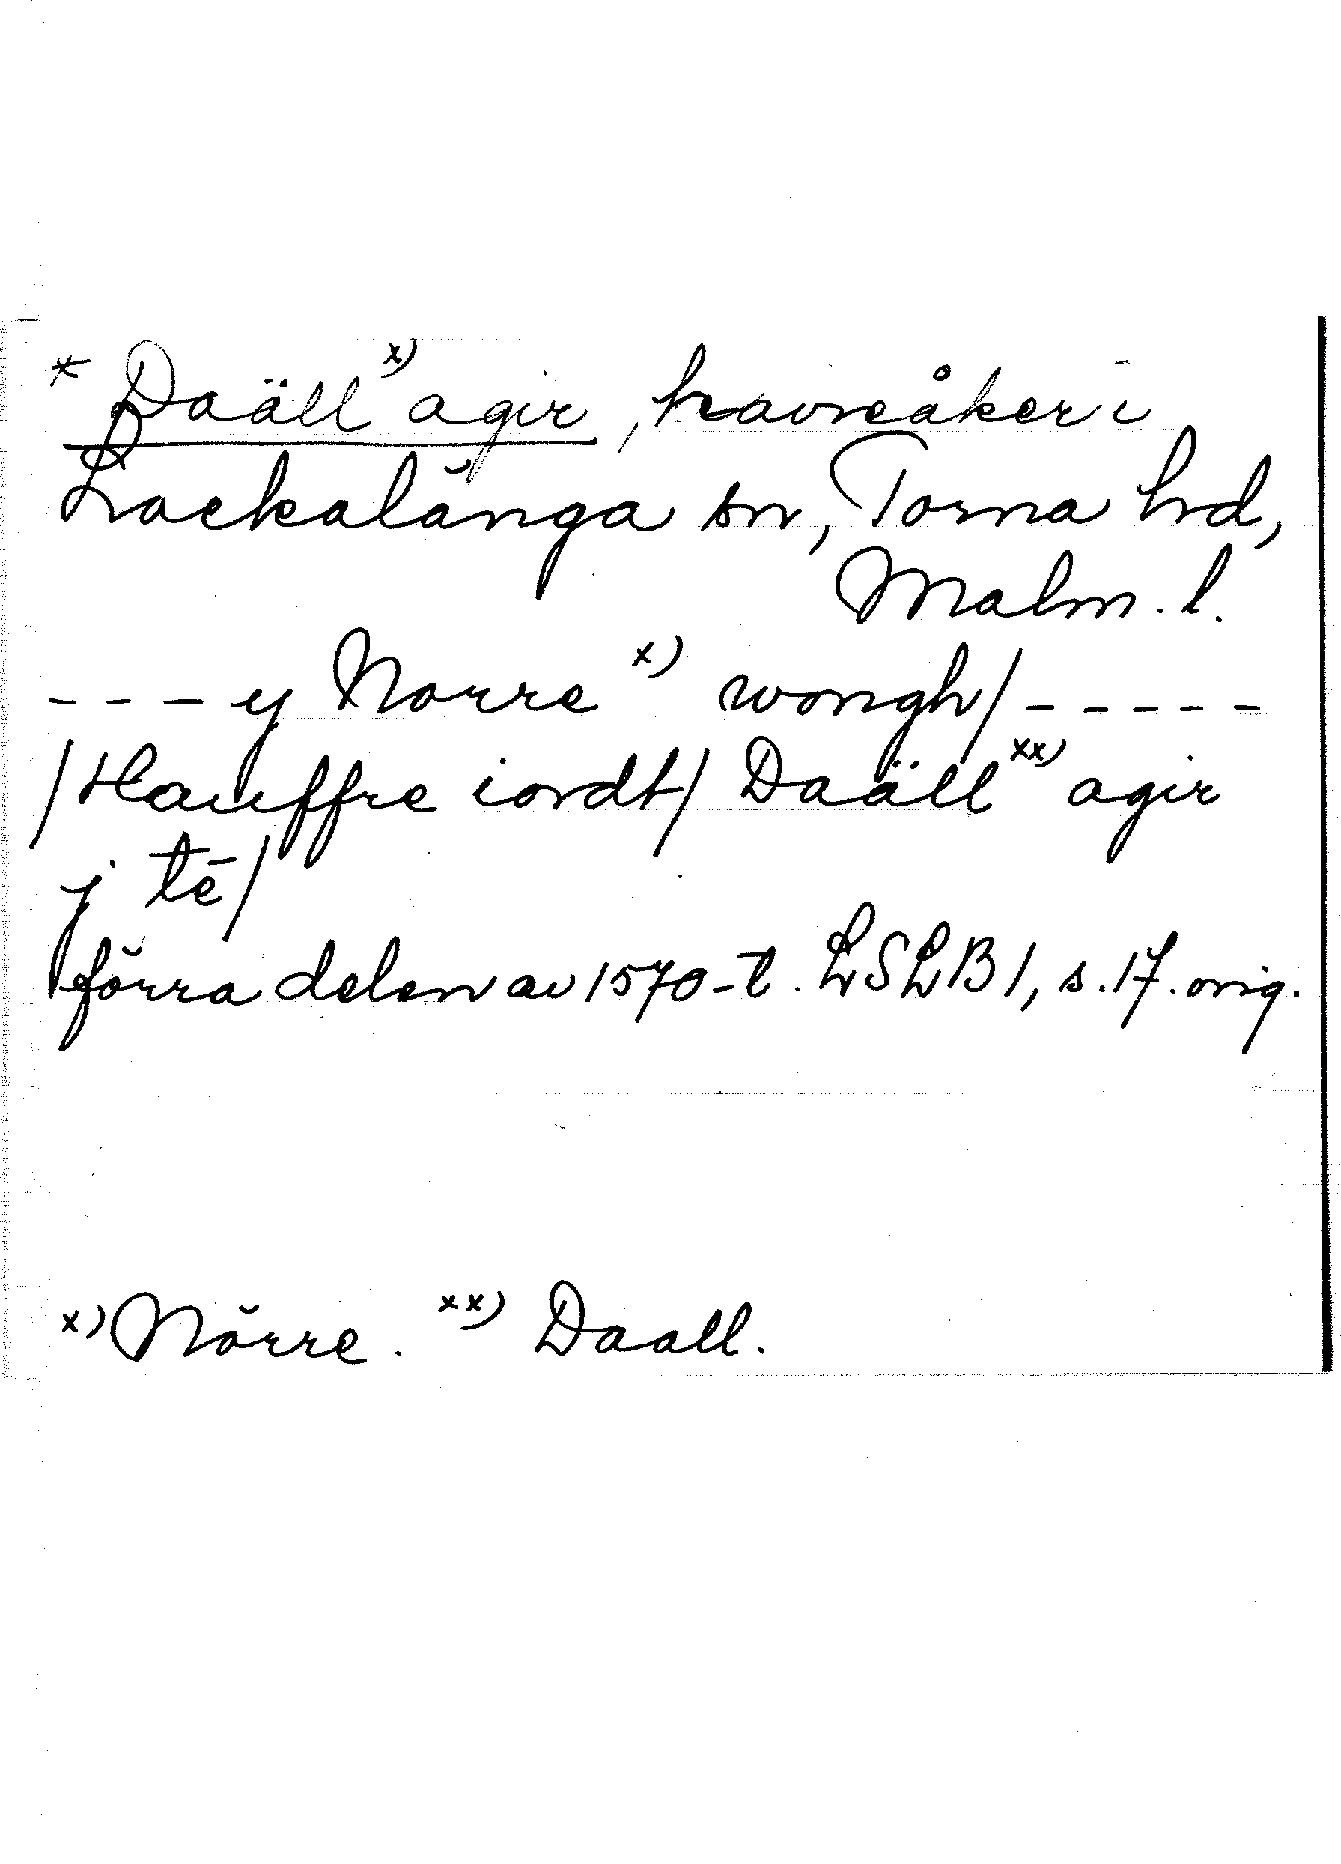 * Daäll x) agir, havreåker i
Lackalänga sn, Torna hrd,
Malm. l.
- - - y Norre x) wongh/ - - - - -
/Hauffre iordt/ Daäll xx) agir
j tē/
förra delen av 1570-t. LSLB 1, s. 17. orig.
x) Nörre. xx) Daall.